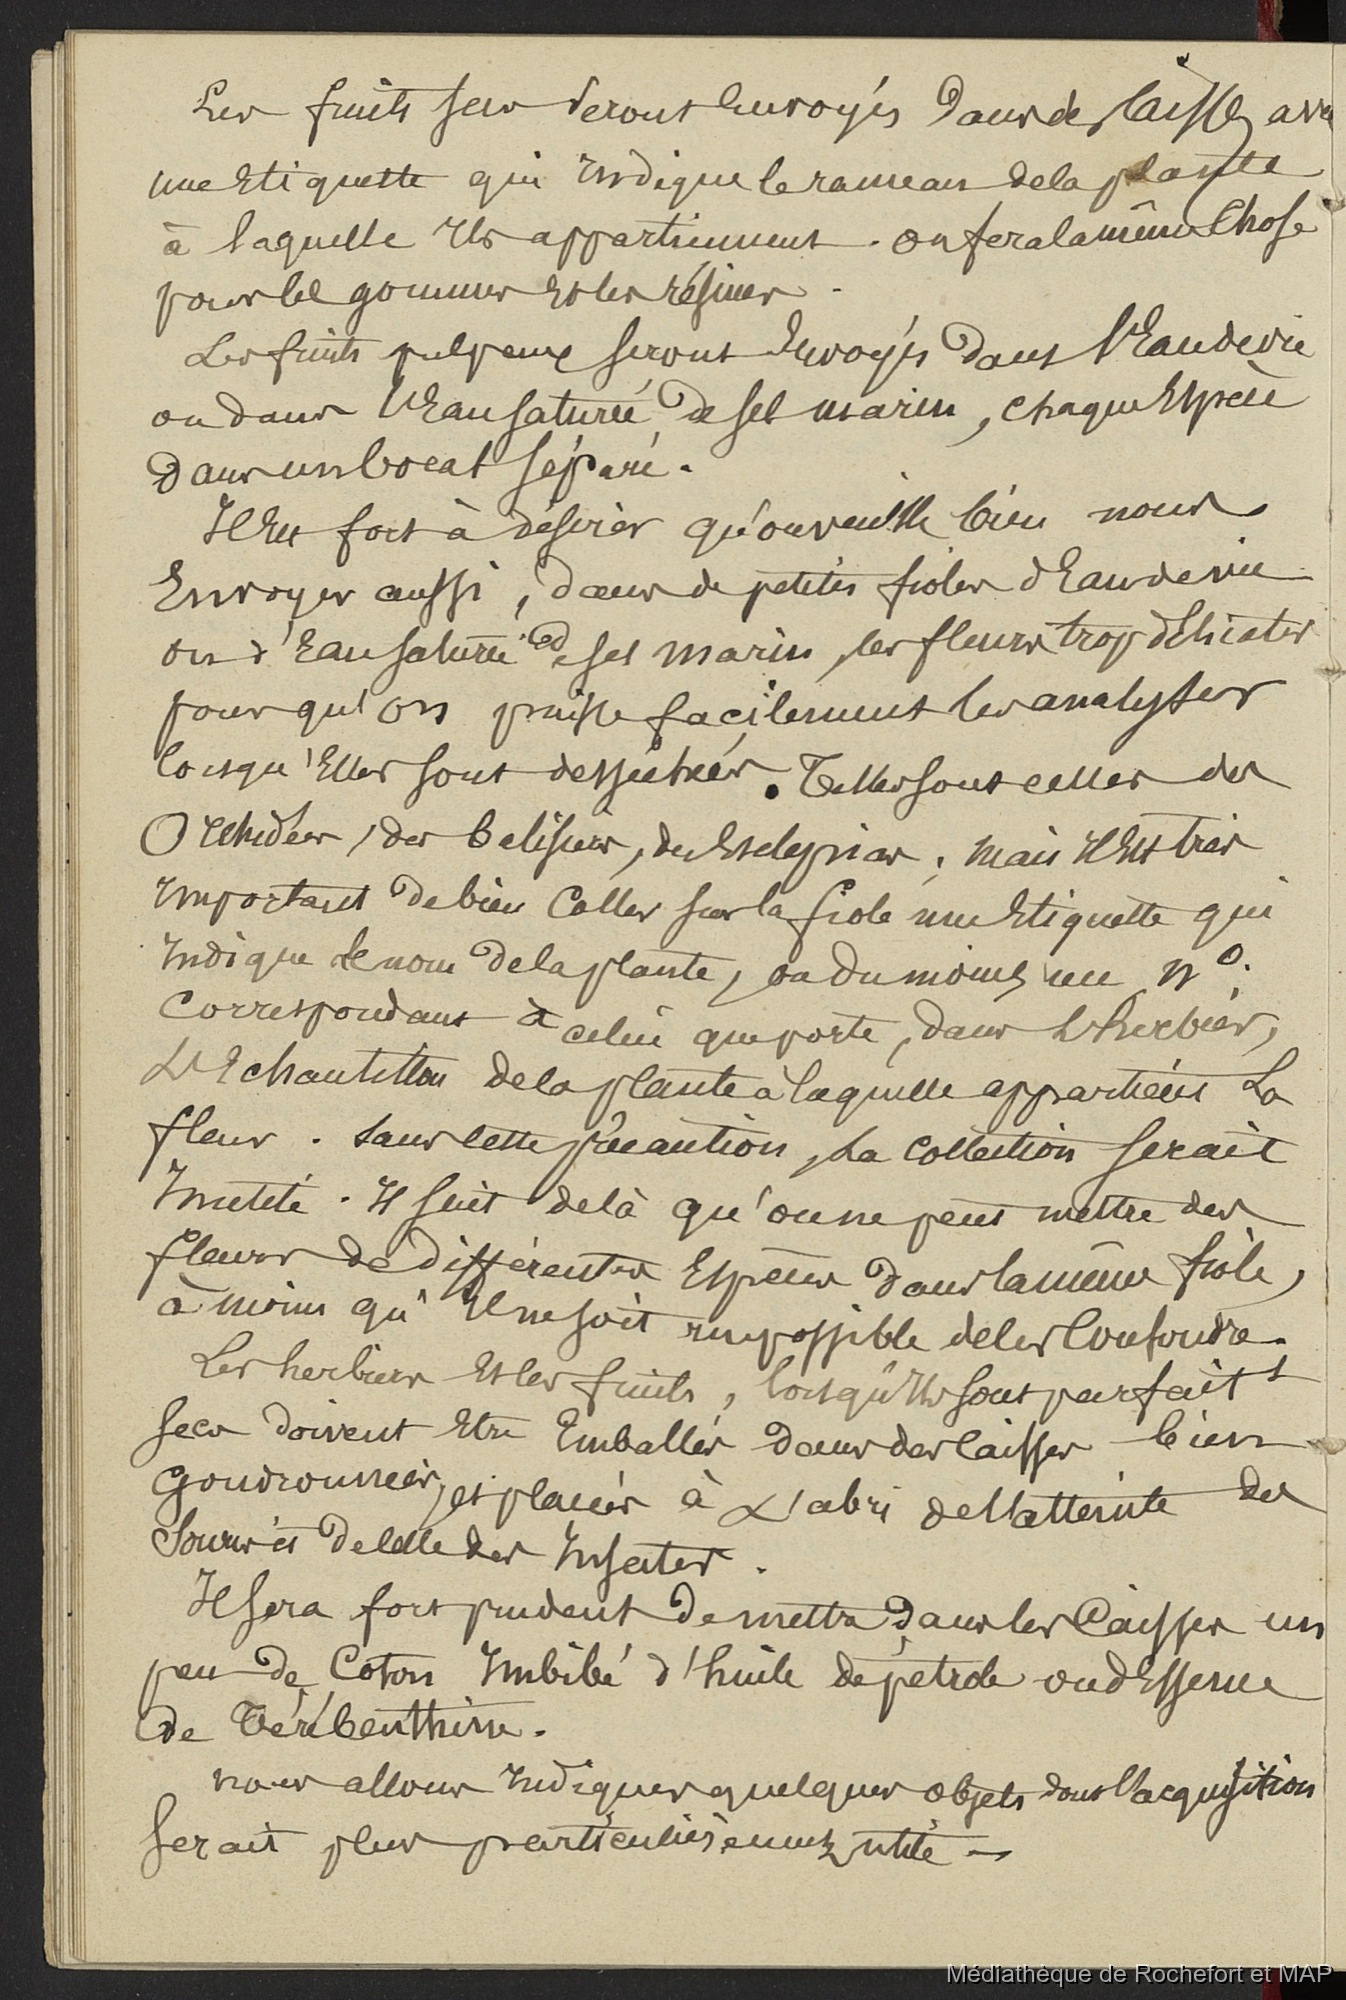 Les fruits secs seront Envoyés Dans des Caisses avec
une Etiquette qui Indique le rameau de la plante
à laquelle Ils appartiennent . on fera la même Chose
pour les gommes Et les résines .
Les fruits pulpeux seront Envoyés Dans l'Eau de vie
ou dans l'Eau saturée de sel marin , chaque Espèce
Dans un bocal séparé .
Il Est fort à désirer qu'on veuille bien nous
Envoyer aussi , dans de petites fioles d'Eau de vie
ou d'Eau saturée de sel marin , les fleurs trop délicates
pour qu'on puisse facilement les analyser
lorsqu'Elles sont desséchées . Telles sont celles des
Orchidées , des balisiers , des Esclepias ; mais Il Est très
Important De bien Coller sur la fiole une Etiquette qui
Indique le nom De la plante , ou Du moins un N°.
Correspondant à celui que porte , dans L'herbier ,
L'Echantillon de la plante à laquelle appartient La
fleur . Sans cette précaution , La Collection serait
Inutile . Il suit de là qu'on ne peut mettre des
fleurs de différentes Espèces Dans la même fiole ,
à moins qu'Il ne soit impossible de les Confondre .
Les herbiers Et les fruits , lorsqu'Ils sont parfait t
secs doivent Etre Emballés dans des Caisses bien
Goudronnées , et placées à L'abri de l'atteinte des
Souris De celle des Insectes .
Il sera fort prudent De mettre Dans les Caisses un
peu De Coton Imbibé d'huile de pétrole ou d'Essence
de Térébenthine .
nous allons Indiquer quelques objets dont l'acquisition
serait plus particulièrement utile —
Médiathèque de Rochefort et MAP